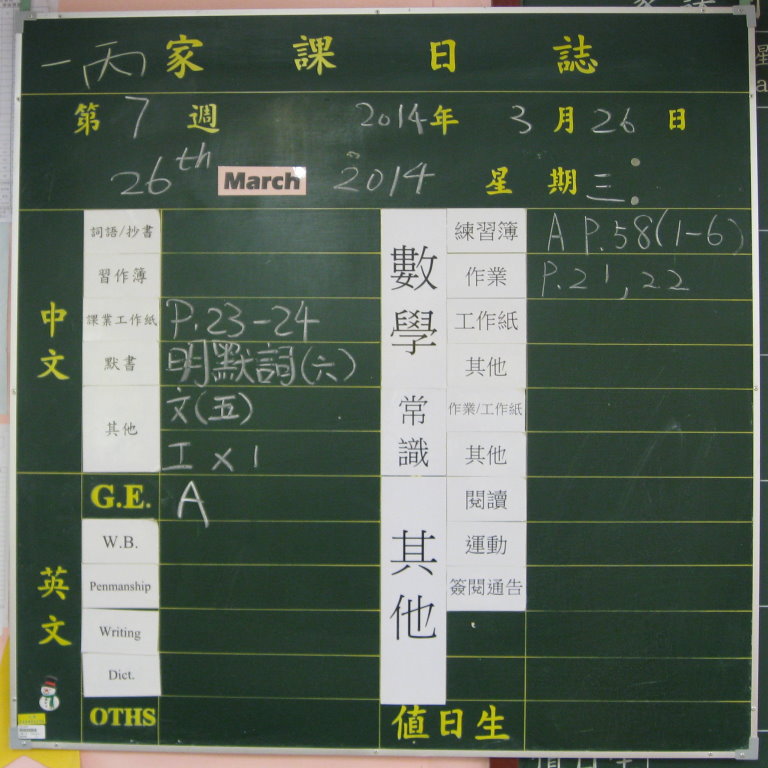 一丙 家課日誌
第 7 週 2014年 3月26日
26th March 2014 星期三
中文
詞語/抄書
習作簿
課業工作紙 P.23-24
默書 明默詞(六)
其他 文(五)
工x1
英文
G.E. A
W.B.
Penmanship
Writing
Dict.
OTHS
數學
練習簿 A P.58(1-6)
作業 P.21,22
工作紙
其他
常識
作業/工作紙
其他
其他
閱讀
運動
簽閱通告
值日生